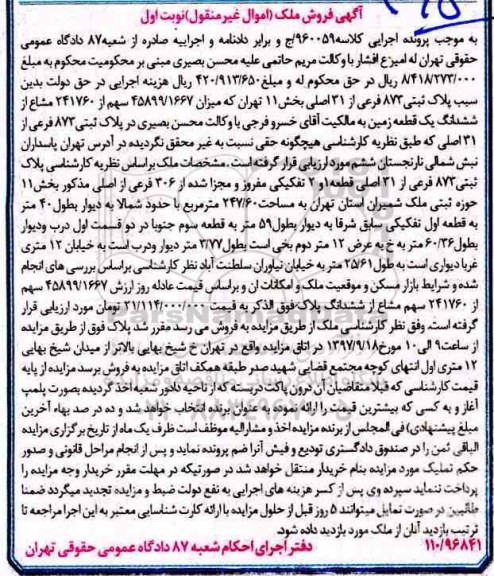 آگهی فروش ملک (اموال غیرمنقول) نوبت اول
به موجب پرونده اجرایی کلاسه ۹۶۰۰۵۹/ج و برابر دادنامه و اجراییه صادره از شعبه ۸۷ دادگاه عمومی
حقوقی تهران له امیرزع افشار با وکالت مریم حاتمی علیه محسن بصیری مبنی بر محکومیت محکوم به مبلغ
۸/۴۱۸/۲۷۳/۰۰۰ ریال در حق محکوم له و مبلغ ۴۲۰/۹۱۳/۶۵۰ ریال هزینه اجرایی در حق دولت بدین
سبب پلاک ثبتی ۸۷۳ فرعی از ۳۱ اصلی بخش ۱۱ تهران که میزان ۴۵۸۹۹/۱۶۶۷ سهم از ۲۴۱۷۶۰ مشاع از
ششدانگ یک قطعه زمین به مالکیت آقای خسرو فرجی با وکالت محسن بصیری در پلاک ثبتی ۸۷۳ فرعی از
۳۱ اصلی که طبق نظریه کارشناسی هیچگونه حقی نسبت به غیر محقق نگردیده در آدرس تهران پاسداران
نبش شمالی نارنجستان ششم مورد ارزیابی قرار گرفته است. مشخصات ملک براساس نظریه کارشناسی پلاک
ثبتی ۸۷۳ فرعی از ۳۱ اصلی قطعه دو ۲ تفکیکی مفروز و مجزا شده از ۳۰۶ فرعی از اصلی مذکور بخش ۱۱
حوزه ثبتی ملک شمیران استان تهران به مساحت ۲۴۷/۶۰ مترمربع با حدود شمالا به دیوار بطول ۴۰ متر
به قطعه اول تفکیکی سابق شرقا به دیوار بطول ۵۹ متر به قطعه سوم جنوبا در دو قسمت اول درب ودیوار
بطول ۶۰/۳۶ متر به خ به عرض ۱۲ متر دوم بخی است بطول ۳/۷۷ متر دیوار ودرب است به خیابان ۱۲ متری
غربا دیواری است به طول ۲۵/۶۱ متر به خیابان نیاوران سلطنت آباد نظر کارشناسی براساس بررسی های انجام
شده و شرایط بازار مسکن و موقعیت ملک و امکانات ان و براساس قیمت عادله روز ارزش ۴۵۸۹۹/۱۶۶۷ سهم
از ۲۴۱۷۶۰ سهم مشاع از ششدانگ پلاک فوق الذکر به قیمت ۲۱/۱۱۴/۰۰۰/۰۰۰ تومان مورد ارزیابی قرار
گرفته است. وفق نظر کارشناسی ملک از طریق مزایده به فروش می رسد مقرر شد پلاک فوق از طریق مزایده
از ساعت ۹ الی ۱۰ مورخ ۱۳۹۷/۹/۱۸ در اتاق مزایده واقع در تهران خ شیخ بهایی بالاتر از میدان شیخ بهایی
۱۲ متری اول انتهای کوچه مجتمع قضایی شهید صدر طبقه همکف اتاق مزایده به فروش برسد مزایده از پایه
قیمت کارشناسی که قبلا متقاضیان آن درون پاکت دربسته که از ناحیه دادورز شعبه اخذ گردیده بصورت پلمپ
آغاز و به کسی که بیشترین قیمت را ارائه نموده به عنوان برنده انتخاب خواهد شد و ده در صد بهاء آخرین
مبلغ پیشنهادی) فی المجلس از برنده مزایده اخذ و مشارالیه موظف است ظرف یک ماه از تاریخ برگزاری مزایده
الباقی ثمن را در صندوق دادگستری تودیع و فیش آنرا ضم پرونده نماید و پس از انجام مراحل قانونی و صدور
حکم تملیک مورد مزایده بنام خریدار منتقل خواهد شد در صورتیکه در مهلت مقرر خریدار وجه مزایده را
پرداخت ننماید سپرده وی پس از کسر هزینه های اجرایی به نفع دولت ضبط و مزایده تجدید میگردد ضمنا
طالبین در صورت تمایل میتوانند ۵ روز قبل از حلول مزایده با ارائه کارت شناسایی معتبر به این اجرا مراجعه تا
ترتیب بازدید آنان از ملک مورد بازدید داده شود.
۱۱۰/۹۶۸۴۱ دفتر اجرای احکام شعبه ۸۷ دادگاه عمومی حقوقی تهران